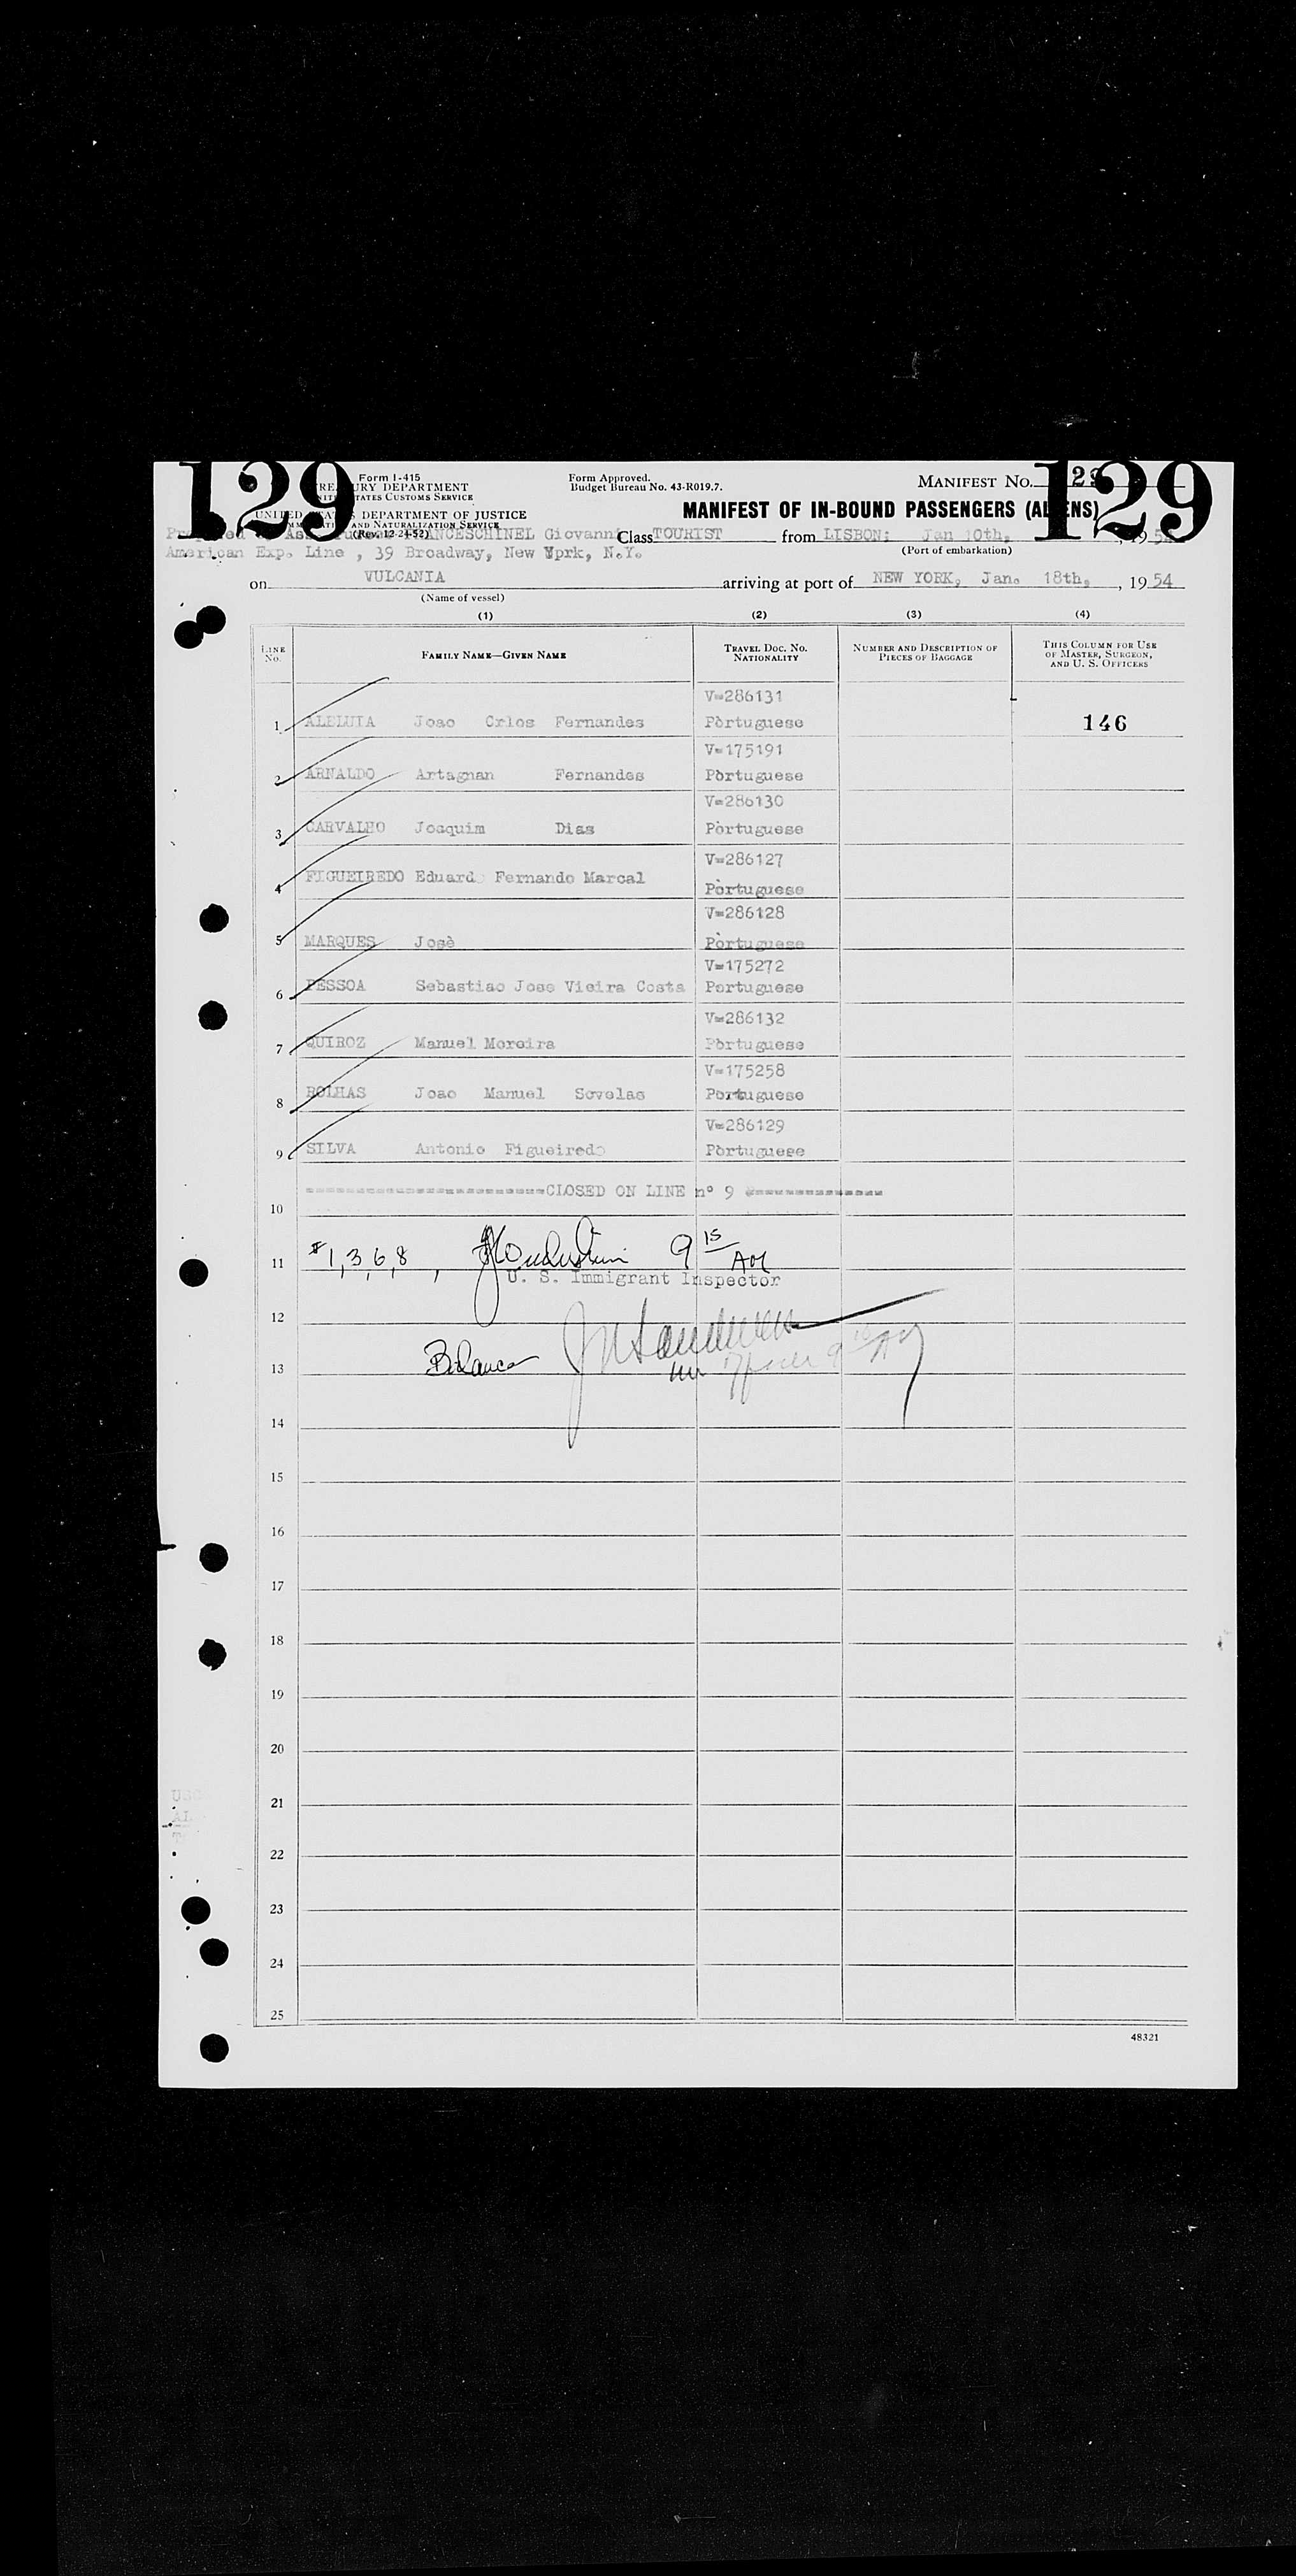 129 129
Form I-415
TREASURY DEPARTMENT
UNITED STATES CUSTOMS SERVICE
Form Approved.
Budget Bureau No. 43-R019.7.
MANIFEST NO. 129
UNITED STATES DEPARTMENT OF JUSTICE
IMMIGRATION AND NATURALIZATION SERVICE
(Rev. 12-24-52)
MANIFEST OF IN-BOUND PASSENGERS (ALIENS)
Giovanni Class TOURIST from LISBON: Jan 10th, , 1954
American Exp. Line , 39 Broadway, New Yprk, N.Y.
(Port of embarkation)
on VULCANIA arriving at port of NEW YORK, Jan. 18th, , 19 54
(Name of vessel)
(1) (2) (3) (4)
LINE NO. FAMILY NAME—GIVEN NAME TRAVEL DOC. NO. NATIONALITY NUMBER AND DESCRIPTION OF PIECES OF BAGGAGE THIS COLUMN FOR USE OF MASTER, SURGEON, AND U. S. OFFICERS
V=286131
1 ALELUIA Joao Crlos Fernandes Pòrtuguese 146
V=175191
2 ARNALDO Artagnan Fernandes Pòrtuguese
V=286130
3 CARVALHO Joaquim Dias Pòrtuguese
V=286127
4 FIGUEIREDO Eduard Fernando Marcal Pòrtuguese
V=286128
5 MARQUES Josè Pòrtuguese
V=175272
6 PESSOA Sebastiao Jose Vieira Costa Portuguese
V=286132
7 QUIROZ Manuel Moreira Pòrtuguese
V=175258
8 ROLHAS Joao Manuel Sovelas Portuguese
V=286129
9 SILVA Antonio Figueiredo Pòrtuguese
=========================CLOSED ON LINE nº 9 ===============
10
11 1,3,6,8, 9 15 AM
U. S. Immigrant Inspector
12
13 Balance
14
15
16
17
18
19
20
21
22
23
24
25
48321